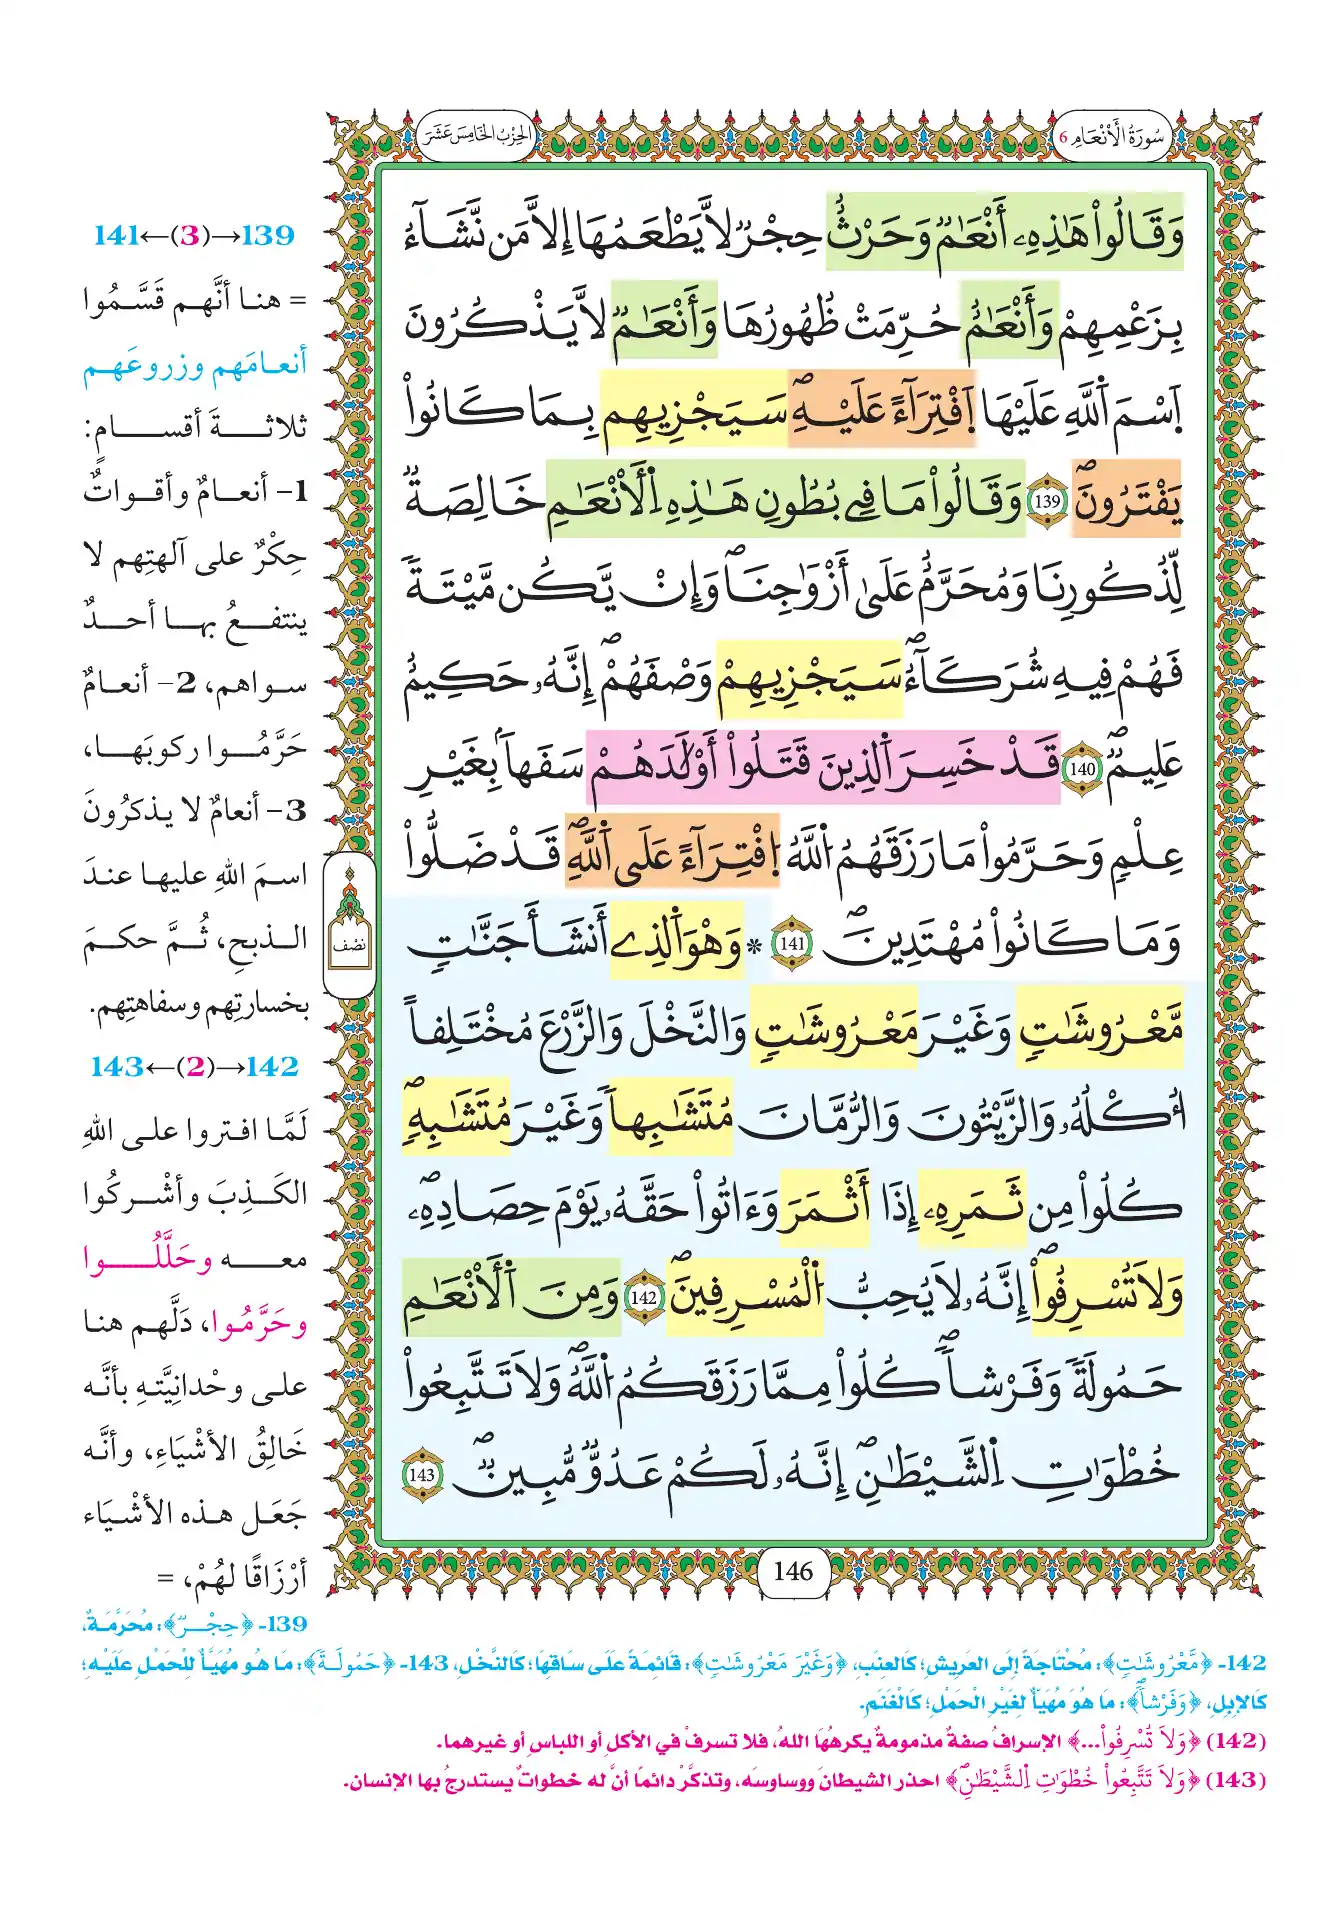 سُورَةُ الأَنْعَامِ 6
الحِزْبُ الخَامِسَ عَشَرَ
وَقَالُواْ هَٰذِهِۦ أَنْعَٰمٞ وَحَرْثٌ حِجْرٞ لَّا يَطْعَمُهَا إِلَّا مَن نَّشَآءُ
بِزَعْمِهِمْ وَأَنْعَٰمٌ حُرِّمَتْ ظُهُورُهَا وَأَنْعَٰمٞ لَّا يَذْكُرُونَ
اَسْمَ اَللَّهِ عَلَيْهَا اَفْتِرَآءً عَلَيْهِۖ سَيَجْزِيهِم بِمَا كَانُواْ
يَفْتَرُونَۖ 139 وَقَالُواْ مَا فِي بُطُونِ هَٰذِهِ اِلْأَنْعَٰمِ خَالِصَةٞ
لِّذُكُورِنَا وَمُحَرَّمٌ عَلَىٰ أَزْوَٰجِنَاۖ وَإِنْ يَّكُن مَّيْتَةٗ
فَهُمْ فِيهِ شُرَكَآءُۖ سَيَجْزِيهِمْ وَصْفَهُمْۖ إِنَّهُۥ حَكِيمٌ
عَلِيمٞۖ 140 قَدْ خَسِرَ اَلذِينَ قَتَلُواْ أَوْلَٰدَهُمْ سَفَهاَۢ بِغَيْرِ
عِلْمٖ وَحَرَّمُواْ مَا رَزَقَهُمُ اُللَّهُ اُفْتِرَآءً عَلَى اَللَّهِۖ قَدْ ضَلُّواْ
وَمَا كَانُواْ مُهْتَدِينَۖ 141 * وَهْوَ اَلذِے أَنشَأَ جَنَّٰتٖ
مَّعْرُوشَٰتٖ وَغَيْرَ مَعْرُوشَٰتٖ وَالنَّخْلَ وَالزَّرْعَ مُخْتَلِفاً
اُكْلُهُۥ وَالزَّيْتُونَ وَالرُّمَّانَ مُتَشَٰبِهاٗ وَغَيْرَ مُتَشَٰبِهٖۖ
كُلُواْ مِن ثَمَرِهِۦ إِذَا أَثْمَرَ وَءَاتُواْ حَقَّهُۥ يَوْمَ حِصَادِهِۦۖ
وَلَا تُسْرِفُواْۖ إِنَّهُۥ لَا يُحِبُّ اُلْمُسْرِفِينَۖ 142 وَمِنَ اَلْأَنْعَٰمِ
حَمُولَةٗ وَفَرْشاٗۖ كُلُواْ مِمَّا رَزَقَكُمُ اُللَّهُۖ وَلَا تَتَّبِعُواْ
خُطْوَٰتِ اِلشَّيْطَٰنِۖ إِنَّهُۥ لَكُمْ عَدُوّٞ مُّبِينٞۖ 143
نصف
146
139→(3)←141
= هنا أنَّهم قَسَّمُوا
أنعامَهم وزروعَهم
ثلاثةَ أقسامٍ:
1- أنعامٌ وأقواتٌ
حِكْرٌ على آلهتِهم لا
ينتفعُ بها أحدٌ
سواهم، 2- أنعامٌ
حَرَّمُوا ركوبَها،
3- أنعامٌ لا يذكرُونَ
اسمَ اللهِ عليها عندَ
الذبحِ، ثُمَّ حكمَ
بخسارتِهم وسفاهتِهم.
142→(2)←143
لَمَّا افتروا على اللهِ
الكَذِبَ وأشْركُوا
معه وحَلَّلُوا
وحَرَّمُوا، دَلَّهم هنا
على وحْدانِيَّتهِ بأنَّه
خَالِقُ الأشْيَاءِ، وأنَّه
جَعَل هذه الأشْيَاء
أرْزَاقًا لهُمْ، =
139- ﴿حِجْرٞ﴾: مُحَرَّمَةٌ،
142- ﴿مَّعْرُوشَٰتٖ﴾: مُحْتَاجَةً إِلَى العَرِيشِ؛ كَالعِنَبِ، ﴿وَغَيْرَ مَعْرُوشَٰتٖ﴾: قَائِمَةً عَلَى سَاقِهَا؛ كَالنَّخْلِ، 143- ﴿حَمُولَةٗ﴾: مَا هُوَ مُهَيَّأٌ لِلْحَمْلِ عَلَيْهِ؛
كَالإِبِلِ، ﴿وَفَرْشاٗۖ﴾: مَا هُوَ مُهَيَّأٌ لِغَيْرِ الْحَمْلِ؛ كَالْغَنَمِ.
(142) ﴿وَلَا تُسْرِفُواْ...﴾ الإسرافُ صفةٌ مذمومةٌ يكرهُهَا اللهُ، فلا تسرفْ في الأكلِ أو اللباسِ أو غيرهما.
(143) ﴿وَلَا تَتَّبِعُواْ خُطْوَٰتِ اِلشَّيْطَٰنِۖ﴾ احذر الشيطانَ ووساوسَه، وتذكَّرْ دائمًا أنَّ له خطواتٌ يستدرجُ بها الإنسان.